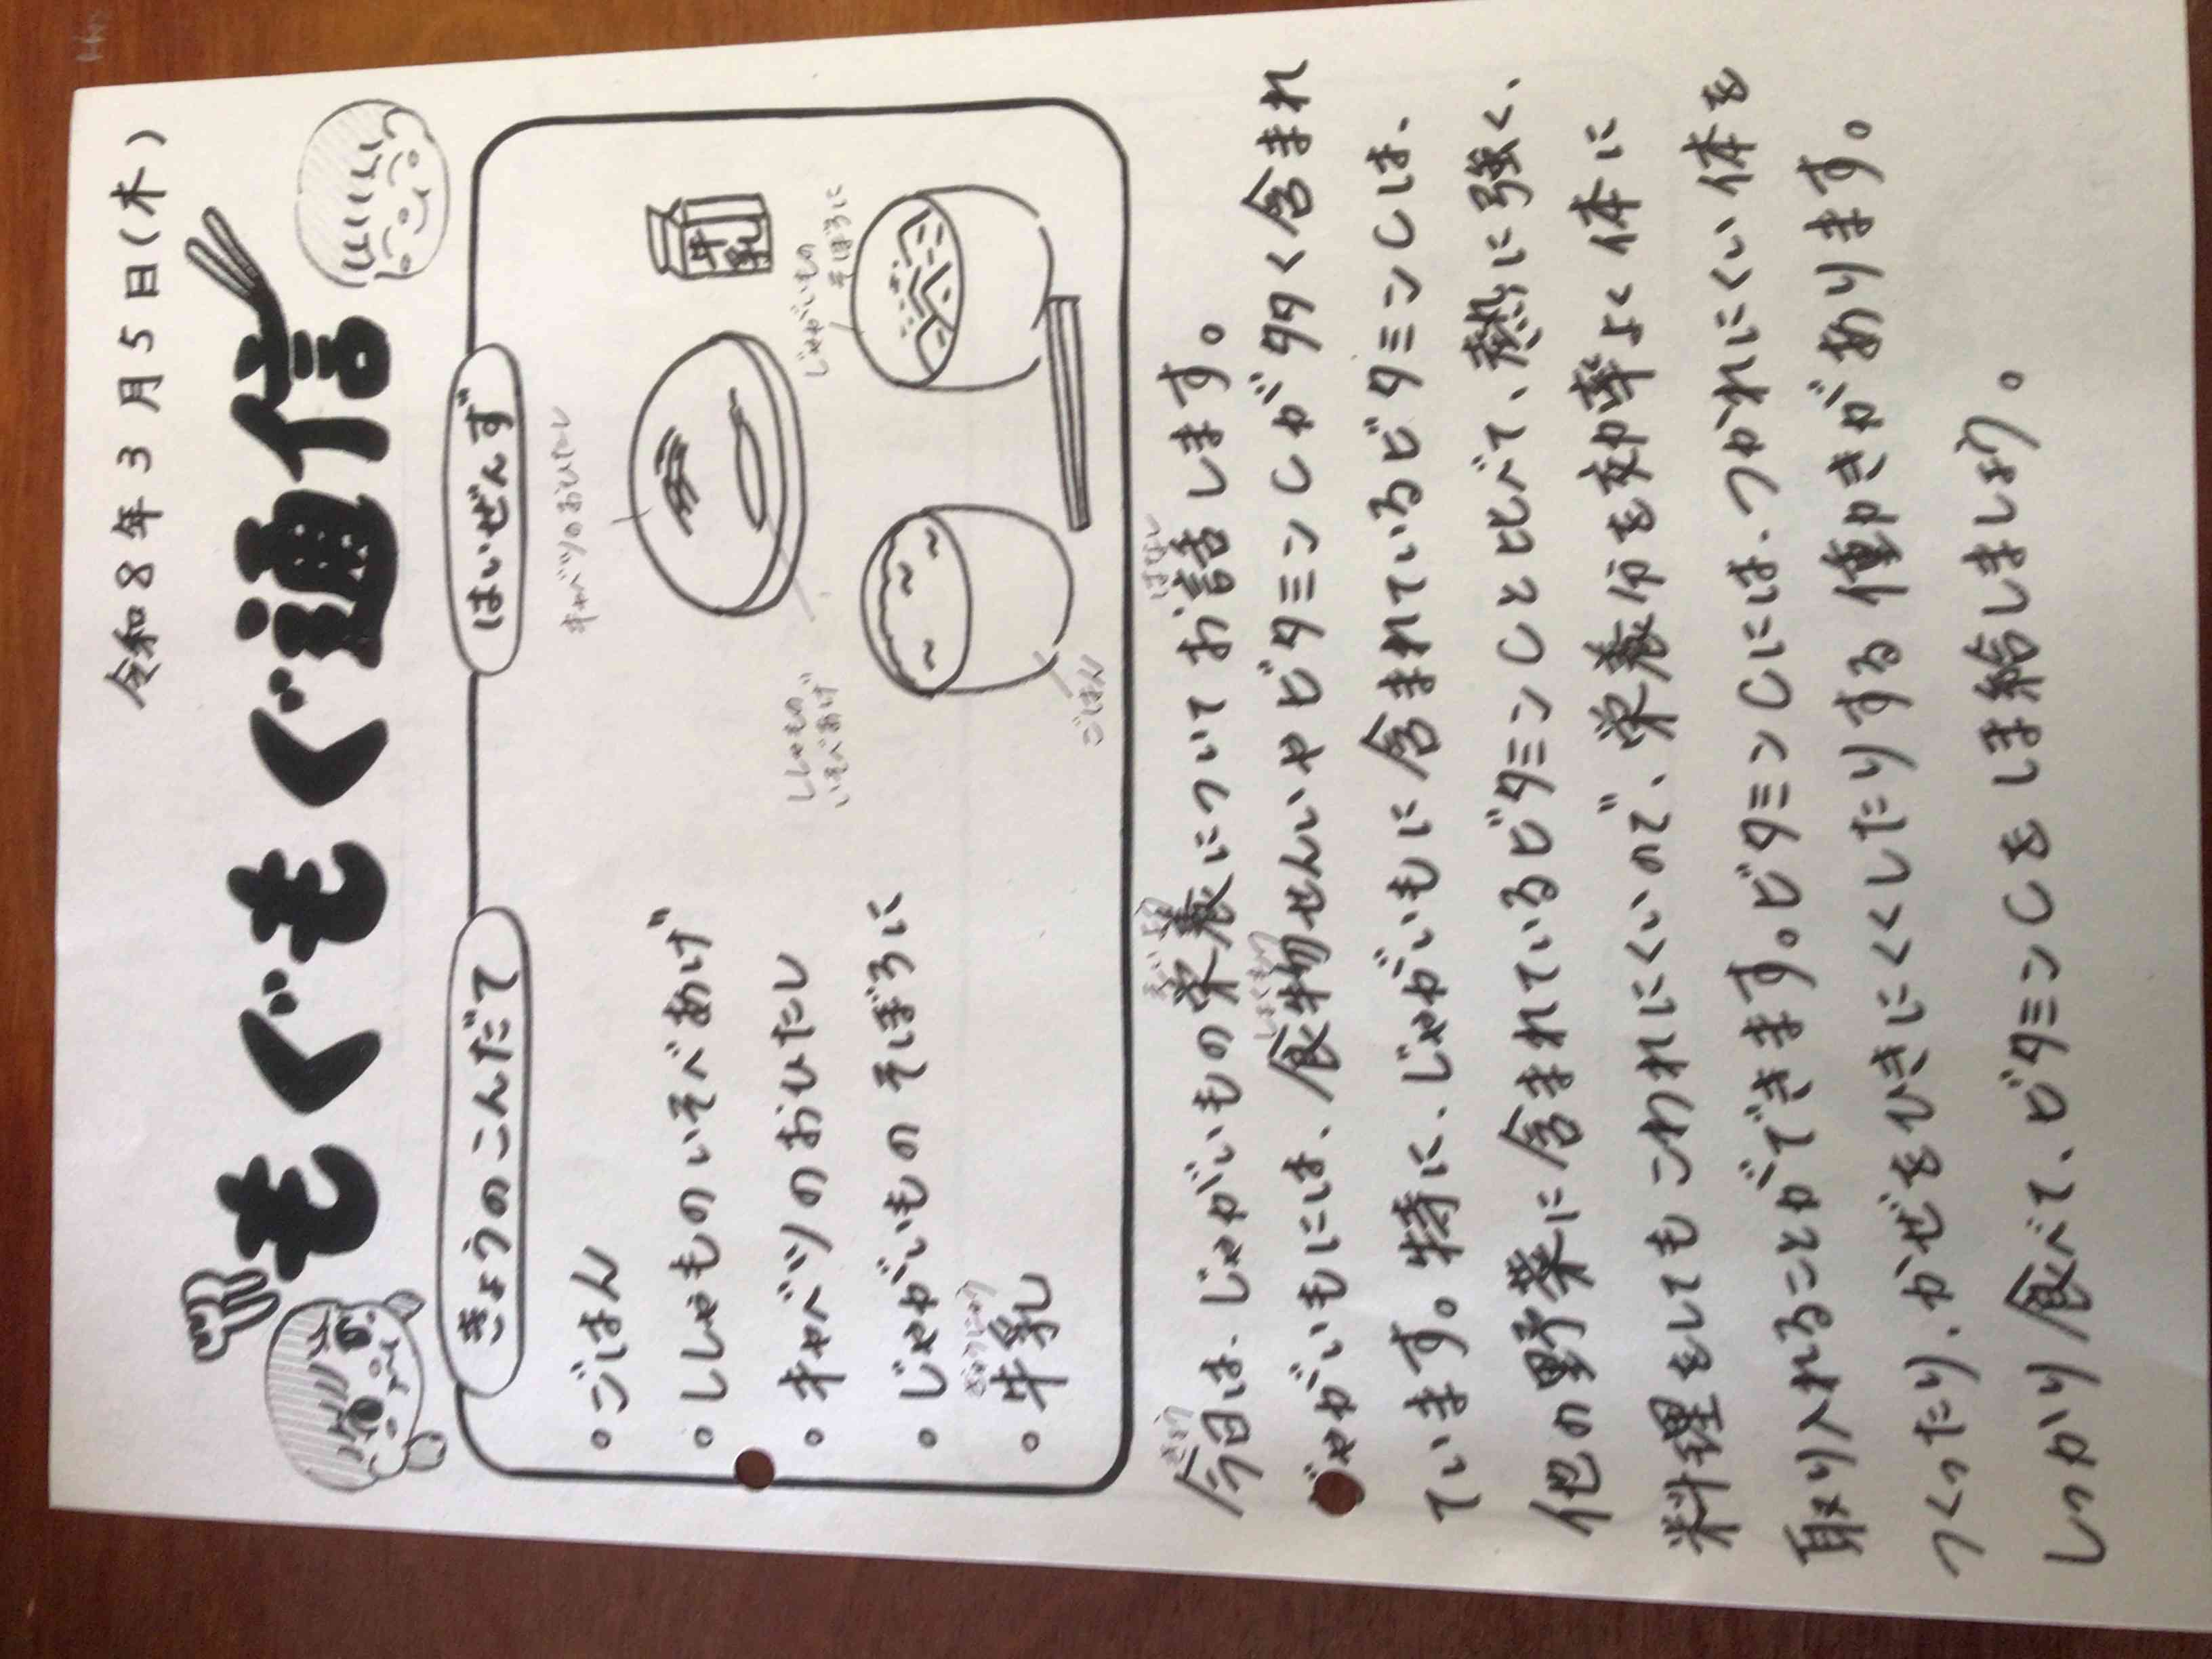 令和8年3月5日(木)
もぐもぐ通信
きょうのこんだて
・ごはん
・ししゃものいそべあげ
・キャベツのおひたし
・じゃがいもの そぼろに
ぎゅうにゅう
・牛乳
はいぜんず
キャベツのおひたし
牛乳
ししゃもの
いそべあげ
じゃがいもの
そぼろに
ごはん
きょう えいよう はなし
今日は、じゃがいもの栄養についてお話します。
しょくもつ
じゃがいもには、食物せんいやビタミンCが多く含まれ
ています。特に、じゃがいもに含まれているビタミンCは、
他の野菜に含まれているビタミンCと比べて、熱に強く、
料理をしてもこわれにくいので、栄養分を効率よく体に
取り入れることができます。ビタミンCには、つかれにくい体を
つくったり、かぜをひきにくくしたりする働きがあります。
しっかり食べて、ビタミンCをほ給しましょう。